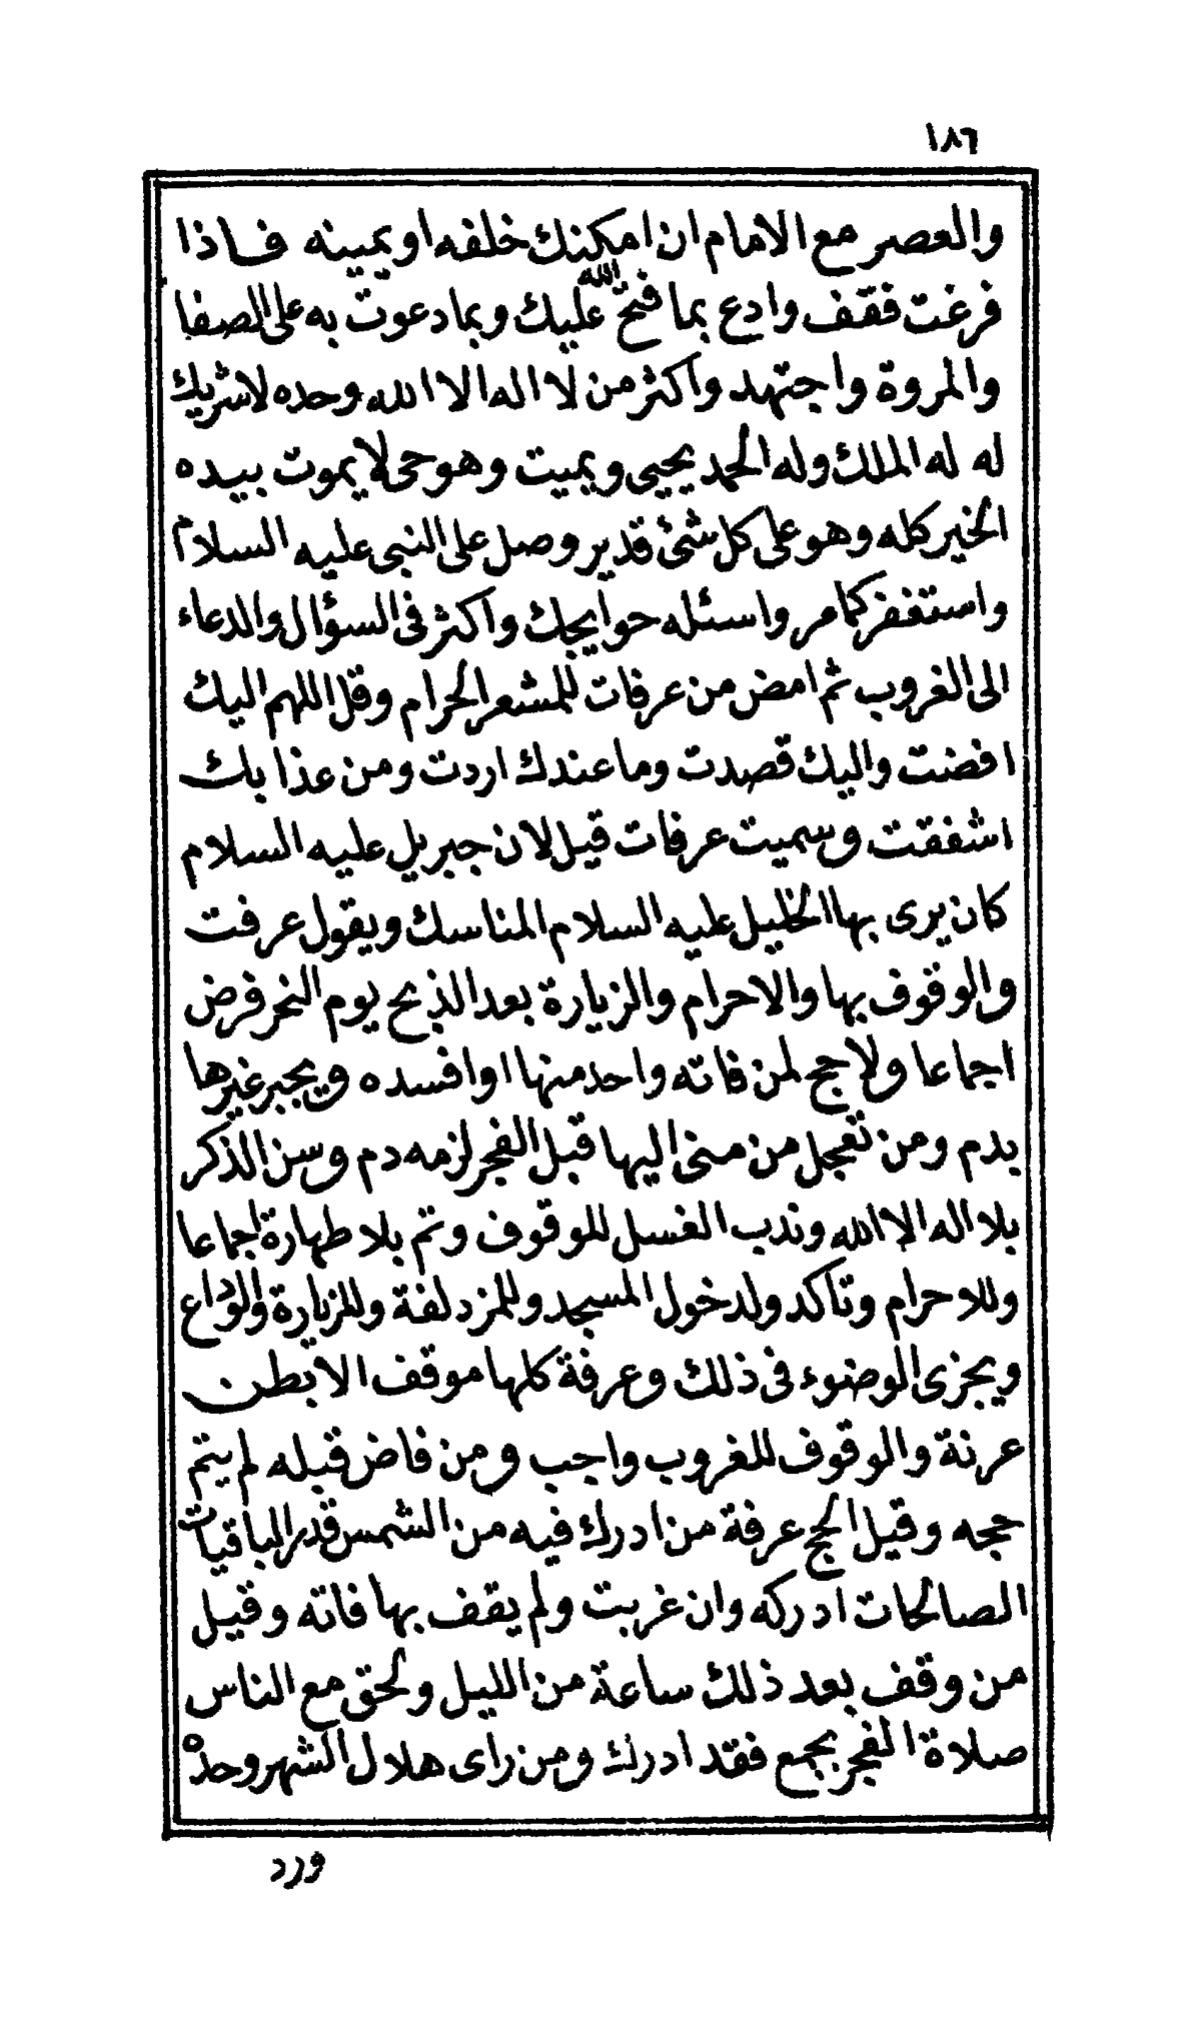 ١٨٦
والعصر مع الامام ان امكنك خلفه او يمينه فاذا
فرغت فقف وادع بما فتح الله عليك وبما دعوت به على الصفا
والمروة واجتهد واكثر من لا اله الا الله وحده لا شريك
له له الملك وله الحمد يحيى ويميت وهو حى لا يموت بيده
الخير كله وهو على كل شئ قدير وصل على النبى عليه السلام
واستغفر كما مر واسئله حوايجك واكثر فى السؤال والدعاء
الى الغروب ثم امض من عرفات للمشعر الحرام وقل اللهم اليك
افضت واليك قصدت وما عندك اردت ومن عذابك
اشفقت وسميت عرفات قيل لان جبريل عليه السلام
كان يرى بها الخليل عليه السلام المناسك ويقول عرفت
والوقوف بها والاحرام والزيارة بعد الذبح يوم النحر فرض
اجماعا ولا حج لمن فاته واحد منها او افسده ويجبر غيرها
بدم ومن تعجل من منى اليها قبل الفجر لزمه دم وسن الذكر
بلا اله الا الله وندب الغسل للوقوف وتم بلا طهارة اجماعا
وللاحرام وتاكد ولدخول المسجد وللمزدلفة وللزيارة والوداع
ويجزى الوضوء فى ذلك وعرفة كلها موقف الا بطن
عرنة والوقوف للغروب واجب ومن فاض قبله لم يتم
حجه وقيل الحج عرفة من ادرك فيه من الشمس قدر الباقيات
الصالحات ادركه وان غربت ولم يقف بها فاته وقيل
من وقف بعد ذلك ساعة من الليل ولحق مع الناس
صلاة الفجر بجمع فقد ادرك ومن راى هلال الشهر وحده
ورد